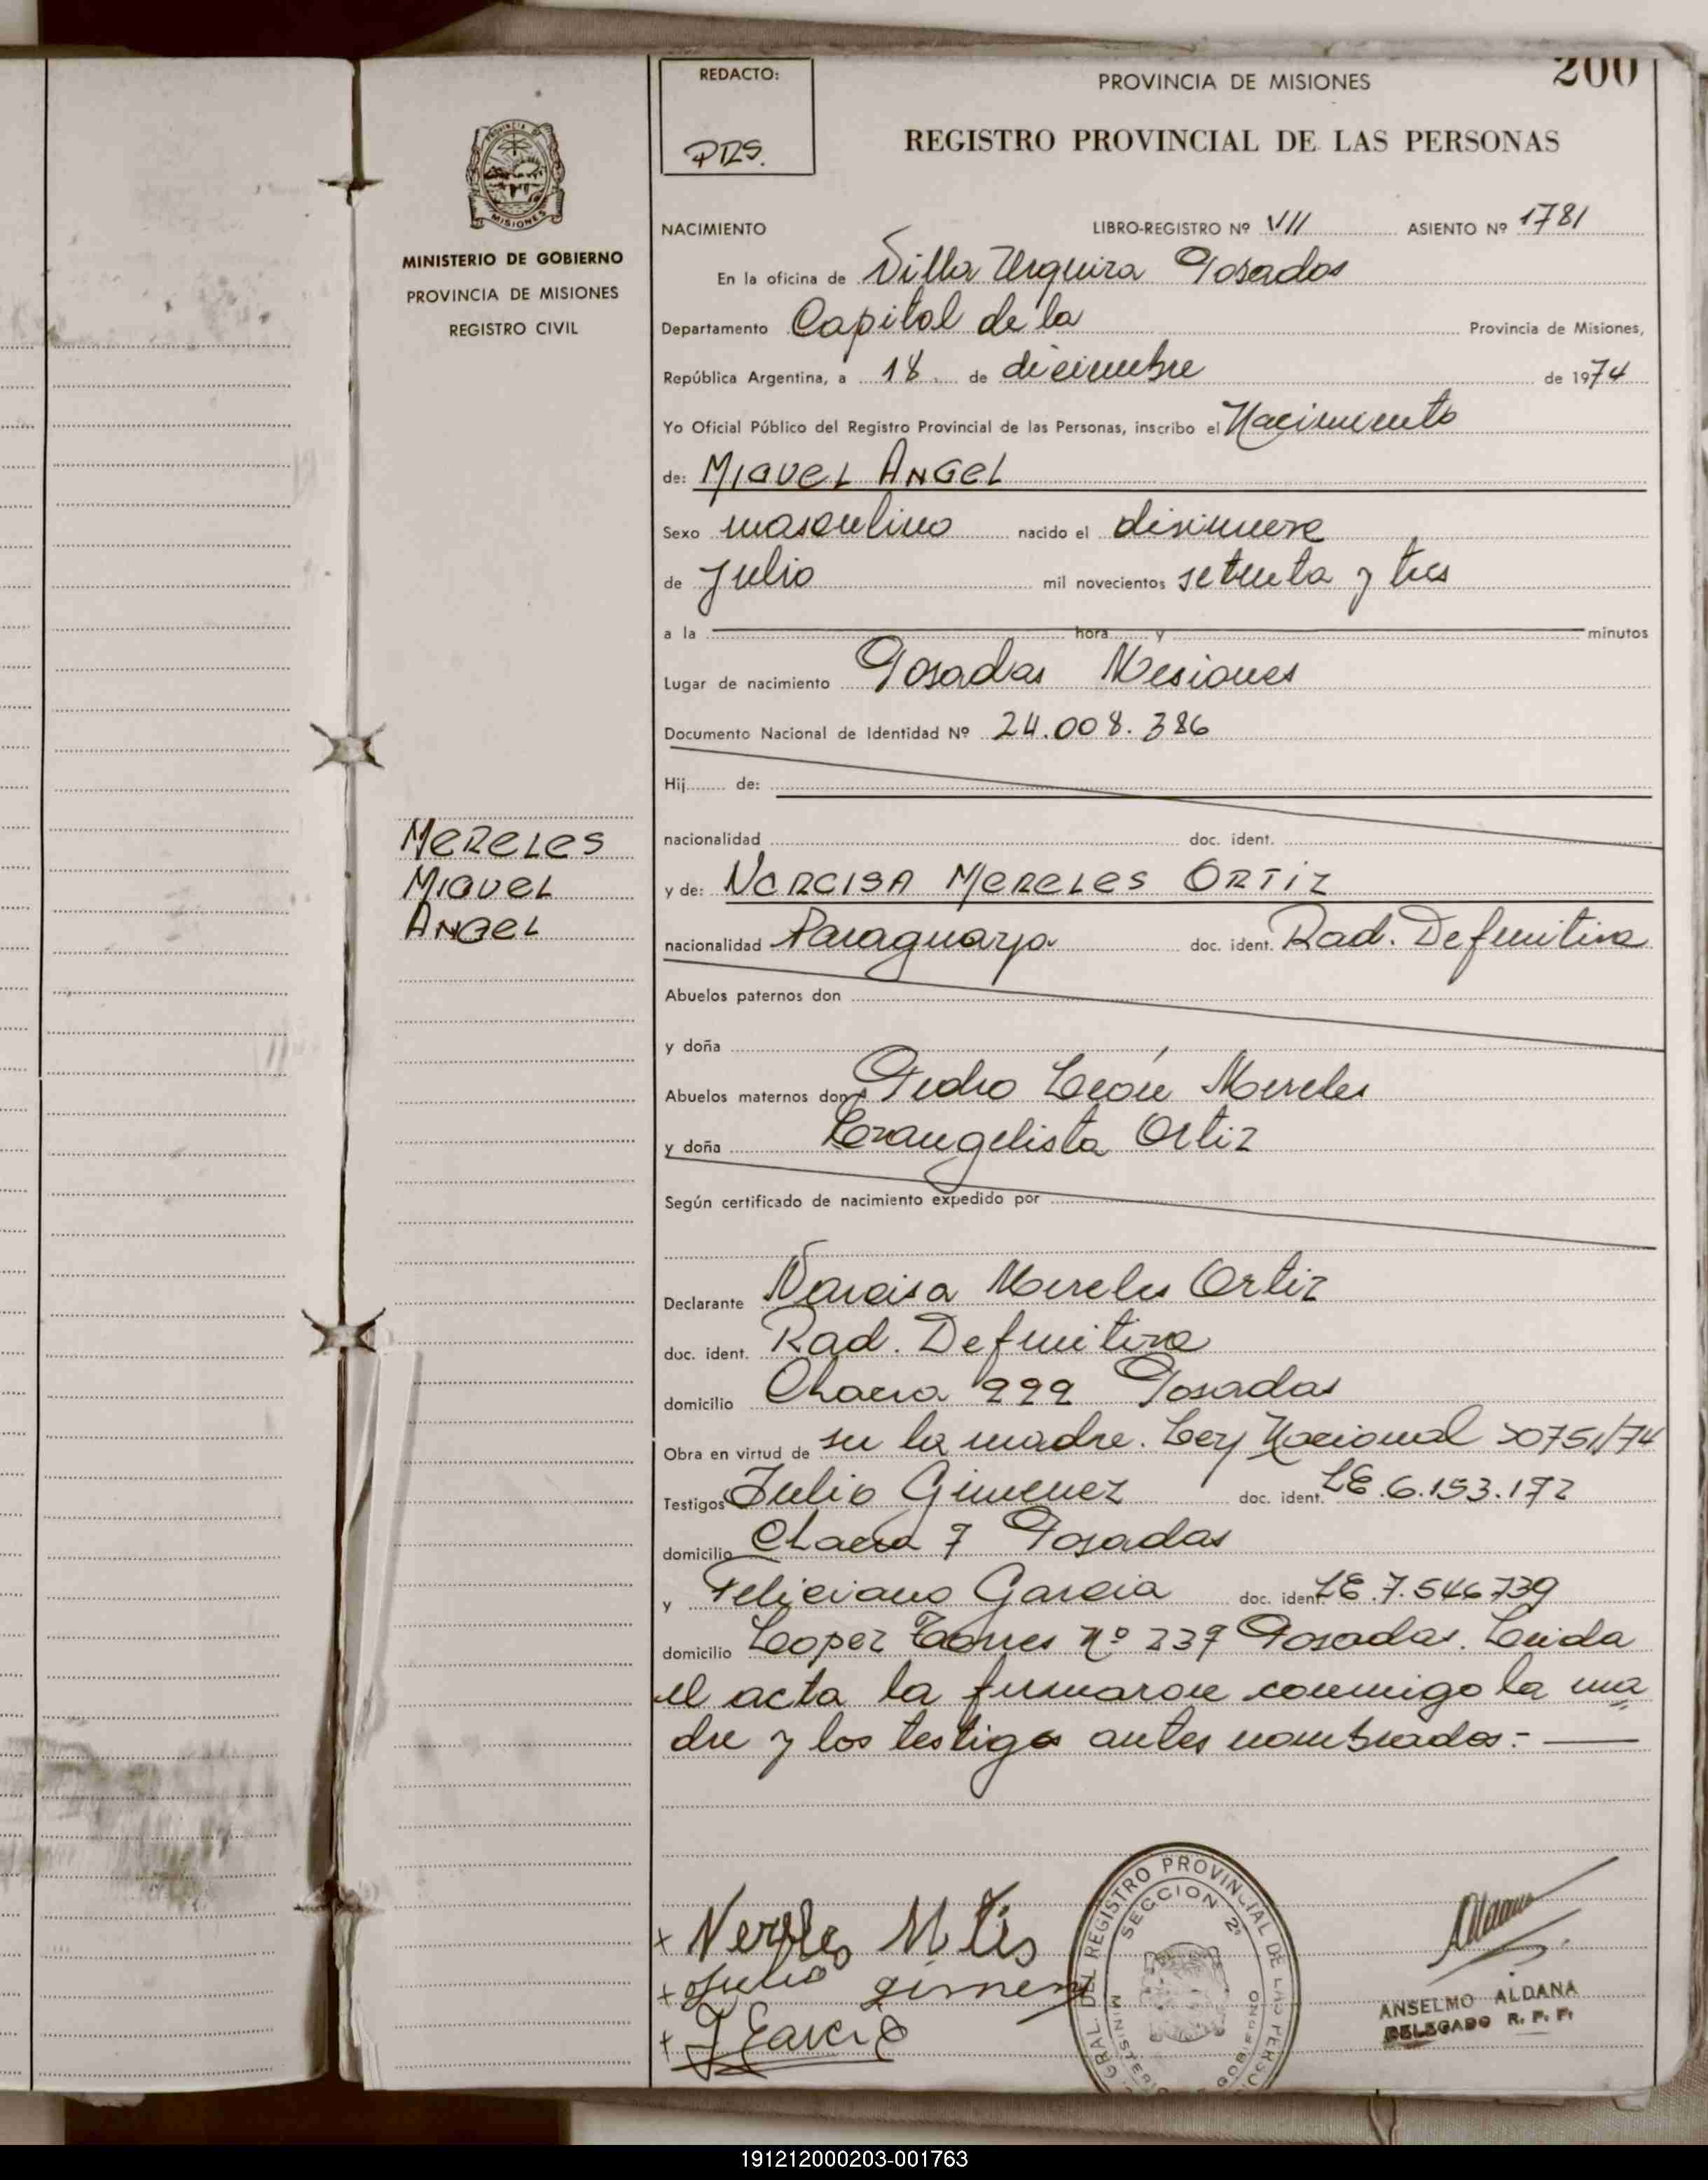 200
REDACTO:
PROVINCIA DE MISIONES
REGISTRO PROVINCIAL DE LAS PERSONAS
PROVINCIA DE
MISIONES
MINISTERIO DE GOBIERNO
PROVINCIA DE MISIONES
REGISTRO CIVIL
NACIMIENTO LIBRO-REGISTRO Nº VII ASIENTO Nº 1781
En la oficina de Villa Urquiza Posadas
Departamento Capital de la Provincia de Misiones,
República Argentina, a 18 de diciembre de 1974
Yo Oficial Público del Registro Provincial de las Personas, inscribo el Nacimiento
de: MIGUEL ANGEL
Sexo masculino nacido el
de Julio mil novecientos setenta y tres
a la hora y minutos
Lugar de nacimiento Posadas Misiones
Documento Nacional de Identidad Nº 24.008.386
Hij de:
nacionalidad doc. ident.
MERELES
MIGUEL
ANGEL
y de: NARCISA MERELES ORTIZ
nacionalidad Paraguaya doc. ident. Rad. Definitiva
Abuelos paternos don
y doña
Abuelos maternos don Pedro León Mereles
y doña Evangelista Ortiz
Según certificado de nacimiento expedido por
Declarante Narcisa Mereles Ortiz
doc. ident. Rad. Definitiva
domicilio Chacra 222 Posadas
Obra en virtud de ser la madre. Ley Nacional 20751/74
Testigos Julio Gimenez doc. ident. LE.6.153.172
domicilio Chacra 7 Posadas
y Feliciano Garcia doc. ident. LE.7.546739
domicilio Lopez Torres Nº 239 Posadas. Leida
el acta la firmaron conmigo la ma
dre y los testigos antes nombrados:-
Julio gimenez
Garcia
GRAL DEL REGISTRO PROVINCIAL DE LAS PERSO
SECCION 2ª
MINISTERIO GOBIERNO
ANSELMO ALDANA
DELEGADO R. P. P.
191212000203-001763